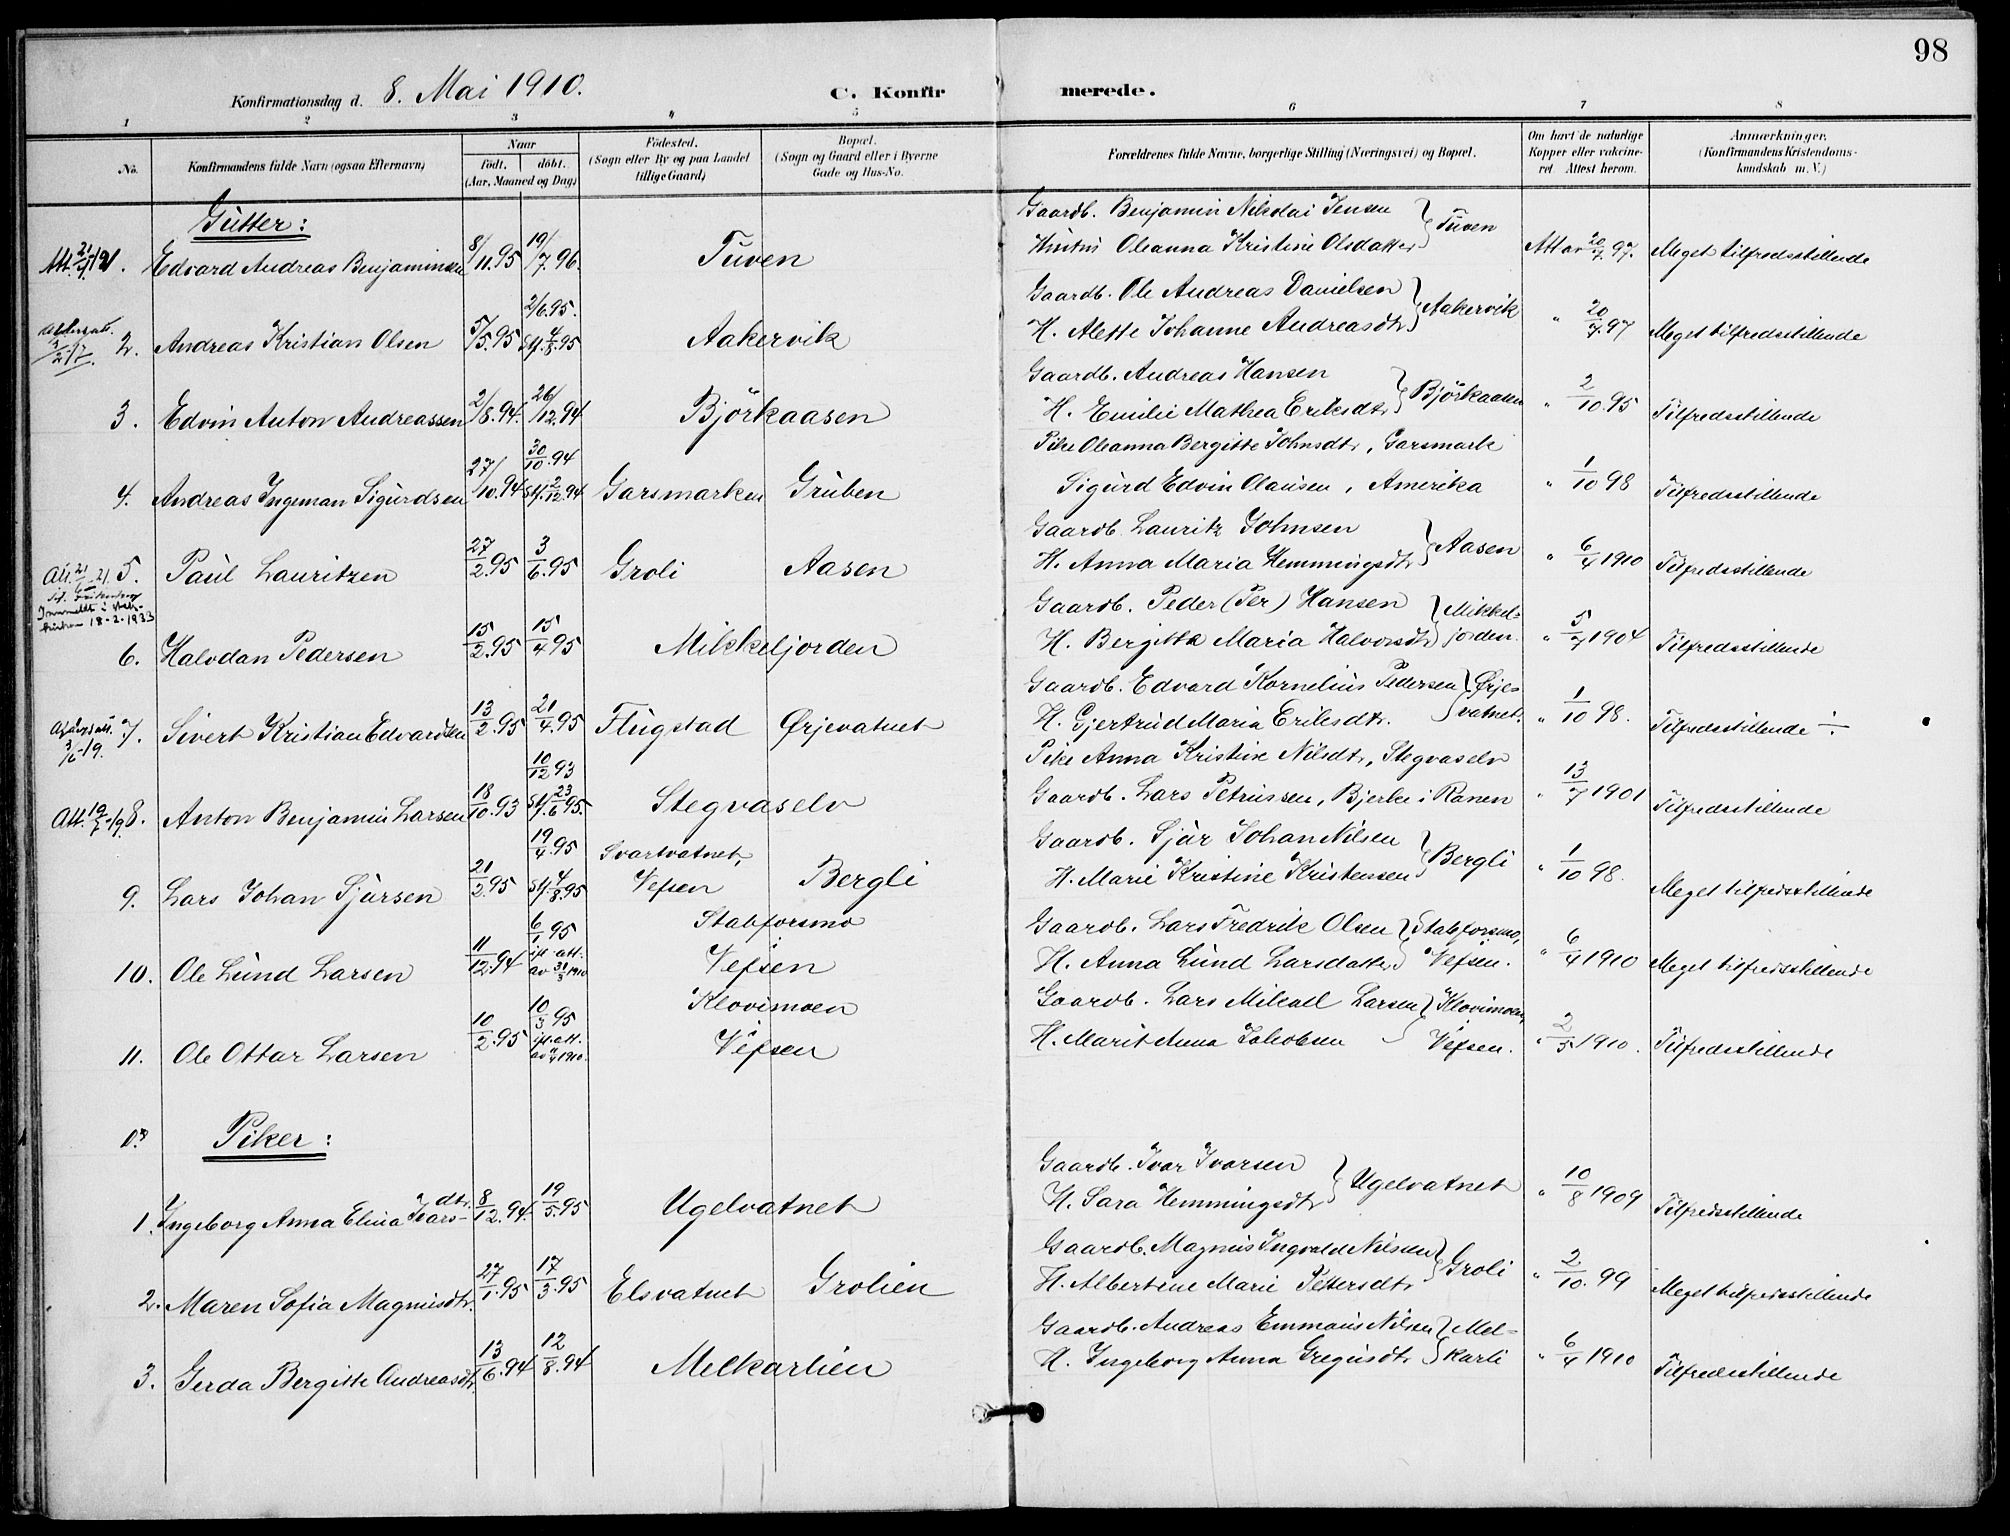 98
Konfirmationsdag d. 8. Mai 1910. C. Konfirmerede.
1 2 3 4 5 6 7 8
No. Konfirmandens fulde Navn (ogsaa Efternavn) Naar Født. døbt. (Aar, Maaned og Dag) Fødested. (Sogn eller By og paa Landet tillige Gaard) Bopæl. (Sogn og Gaard eller i Byerne Gade og Hus-No. Forældrenes fulde Navne, borgerlige Stilling (Næringsvei) og Bopæl. Om havt de naturlige Kopper eller vakcineret. Attest herom. Anmærkninger. (Konfirmandens Kristendomskundskab m. V.)
Gutter:
Gaardb. Benjamin Nikolai Jensen
Att. 21/4 21 1. Edvard Andreas Benjaminsen 8/11.95 19/7.96. Tuven Hustru Oleanna Kristine Olsdatter } Tuven Att av 20/7.97. Meget tilfredsstillende
2/6.95. Gaardb. Ole Andreas Danielsen
2. Andreas Kristian Olsen 5/5.95 St. 4/8.95 Aakervik H. Alette Johanne Andreasdtr } Aakervik " 20/7.97 Meget tilfredsstillende
Gaardb. Andreas Hansen
3. Edvin Anton Andreassen 2/8.94. 26/12.94 Björkaasen H. Emilie Mathea Eriksdtr } Björkaasen " 2/10.95 Tilfredsstillende
30/10.94 Pike Oleanna Bergitte Johnsdtr, Garsmark
4. Andreas Ingeman Sigurdsen 27/10.94 St. 2/12.94 Garsmarken Gruben Sigurd Edvin Olausen, Amerika " 1/10 98 Tilfredsstillende
Gaardb. Lauritz Johnsen
Att. 21/ 21. 5. Paul Lauritzen 27/2.95 3/6.95 Groli Aasen H. Anna Maria Hemmingsdtr } Aasen " 6/4 1910 Tilfredsstillende
18-2-1933
Gaardb. Peder (Per) Hansen
6. Halvdan Pedersen 15/2.95 15/4 95 Mikkeljorden H. Bergitta Maria Halvorsdtr } Mikkeljorden. " 5/7 1904 Tilfredsstillende
Gaardb. Edvard Kornelius Pedersen
3/6-19. 7. Sivert Kristian Edvardsen 13/2.95 21/4.95 Flugstad Ørjevatnet H. Gjertrud Maria Eriksdtr. } Ørjesvatnet. " 1/10 98. Tilfredsstillende ÷
10/12 93 Pike Anna Kristine Nilsdtr, Stegvaselv
Att. 19/7-19 8. Anton Benjamin Larsen 18/10.93 St. 23/6 95. Stegvaselv Gaardb. Lars Petrussen, Bjerke i Ranen " 13/7 1901 Tilfredsstillende
19/4.95 Svartvatnet, Gaardb. Sjur Johan Nilsen
9. Lars Johan Sjursen 21/2.95 St. 4/8.95 Vefsen Bergli H. Marie Kristine Kristensen } Bergli " 1/10 98. Meget tilfredsstillende
6/1 95 Stabforsmo Gaardb. Lars Fredrik Olsen } Stabforsmo,
10. Ole Lund Larsen 11/12.94 ifl. att. av 31/3 1910 Vefsen H. Anna Lund Larsdatter Vefsen. " 6/4 1910 Meget tilfredsstillende
10/3 95 Klovimoen Gaardb. Lars Mikael Larsen } Klovimoen,
11. Ole Ottar Larsen 10/2.95 ifl. att. av 1910. Vefsen H. Marit Anna Jakobsen Vefsen. " 2/5 1910. Tilfredsstillende
Piker:
Gaardb. Ivar Ivarsen
1. Ingeborg Anna Elina Ivarsdtr. 8/12.94. 19/5.95 Ugelvatnet H. Sara Hemmingsdtr } Ugelvatnet " 10/8 1909 Tilfredsstillende
Gaardb. Magnus Ingvald Nilsen
2. Maren Sofia Magnusdtr. 27/1.95 17/3.95 Elsvatnet Grolien H. Albertine Marie Pettersdtr } Groli " 2/10. 99 Meget tilfredsstillende
Gaardb. Andreas Emmaus Nilsen
3. Gerda Bergitte Andreasdtr. 13/6.94 12/8.94 Melkarlien H. Ingeborg Anna Gregusdtr } Melkarli " 6/4 1910 Tilfredsstillende